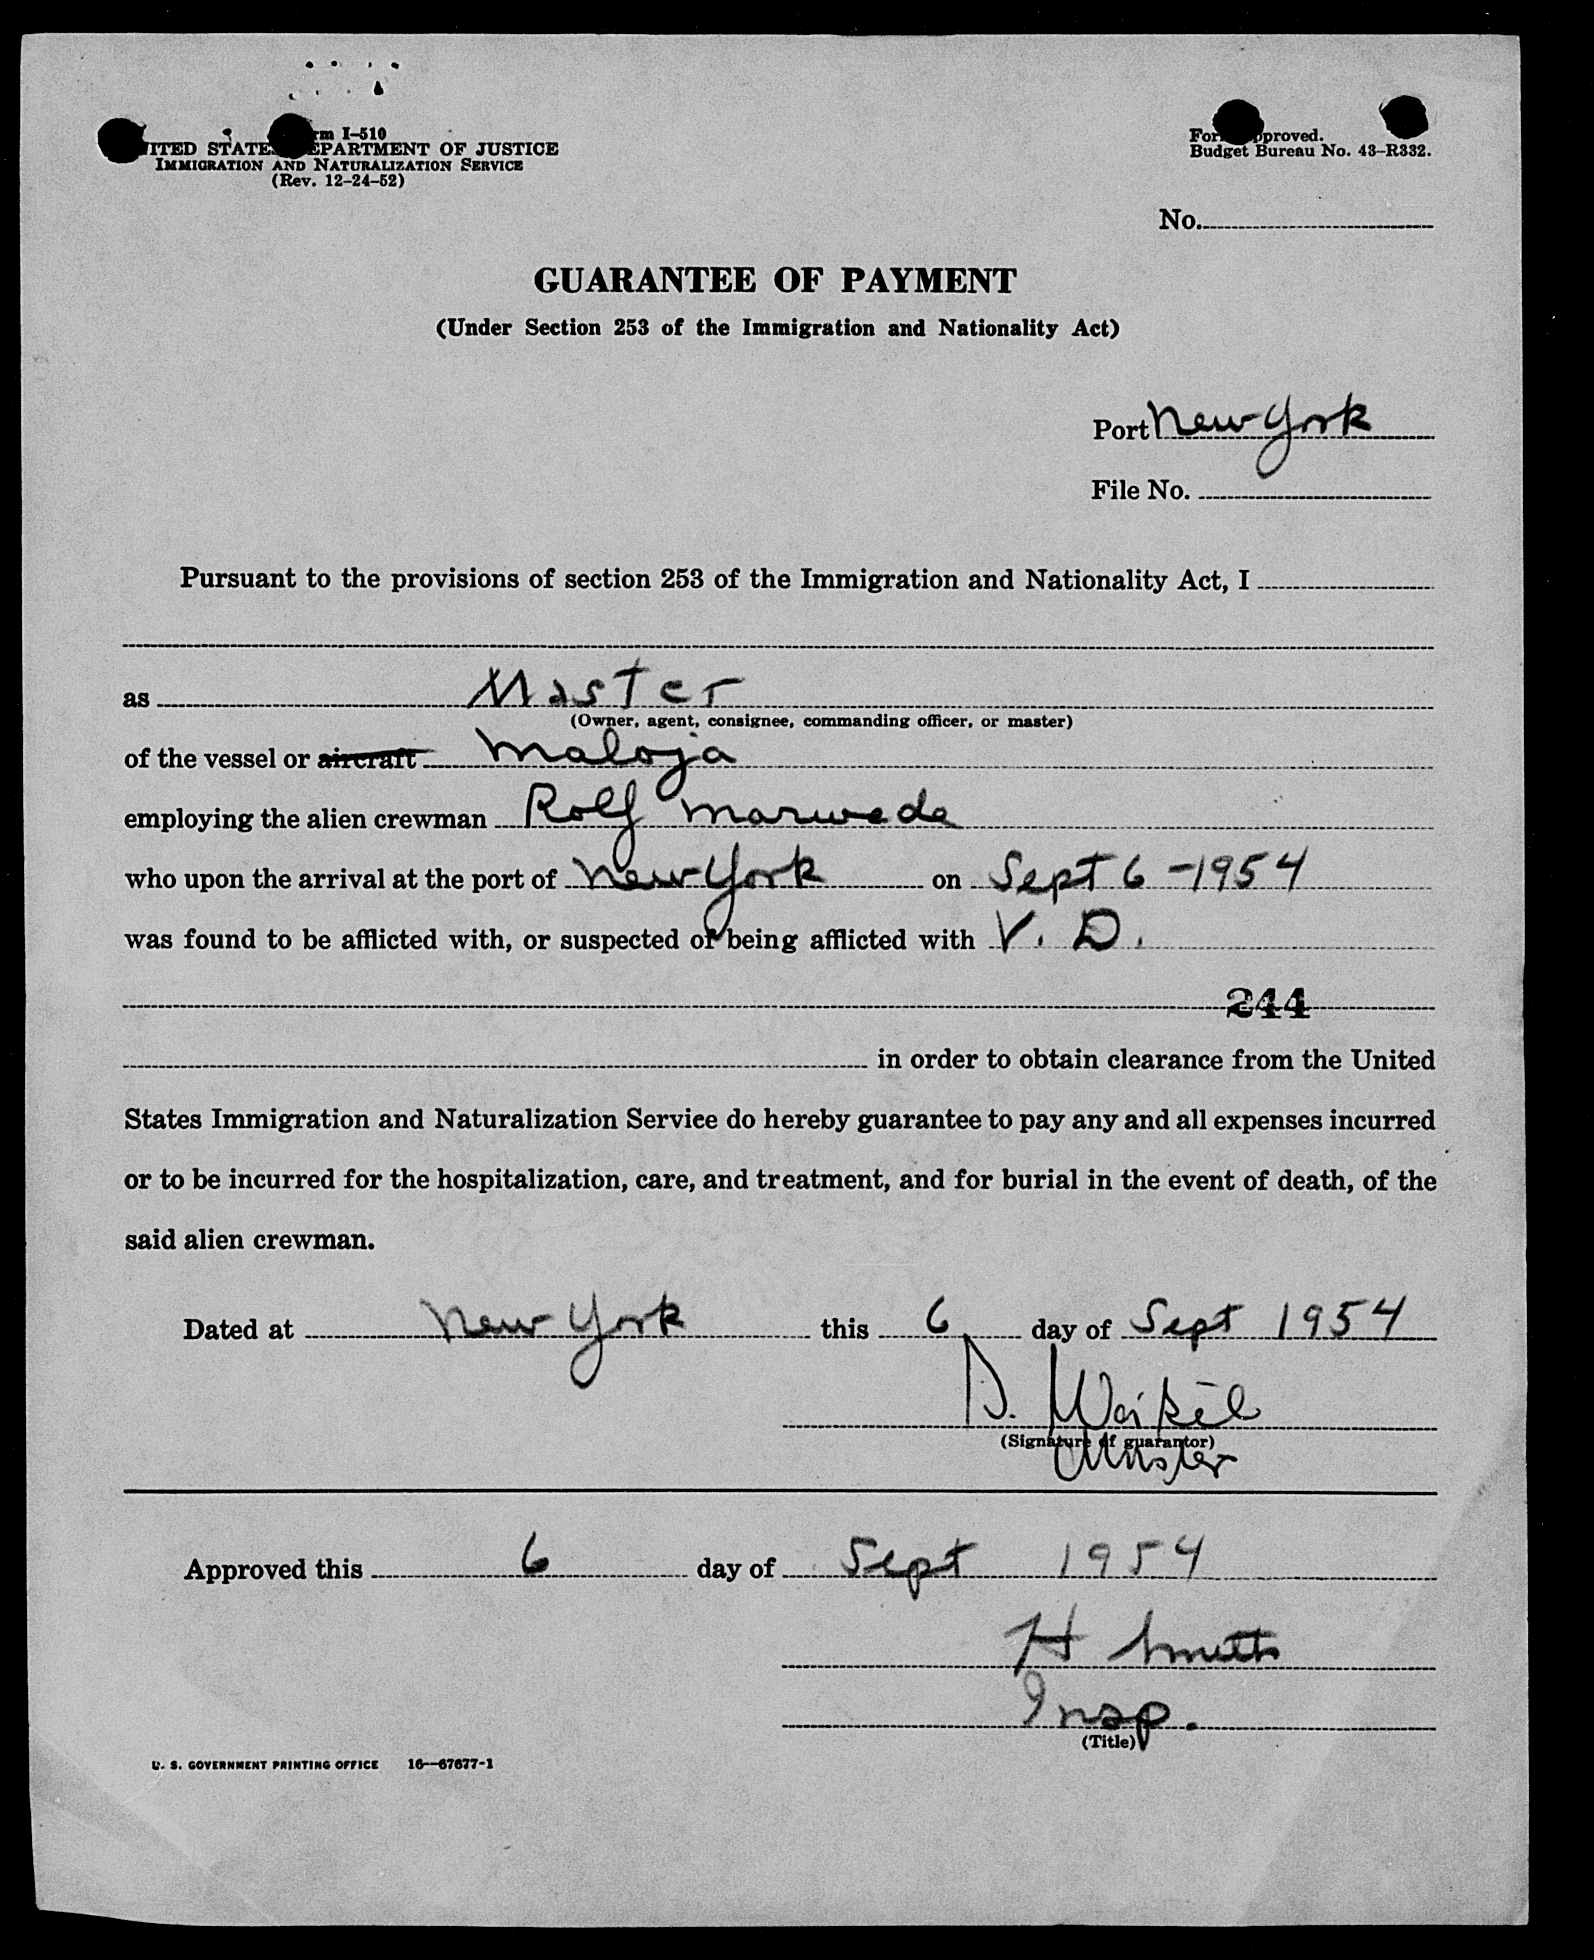 Form I-510
UNITED STATES DEPARTMENT OF JUSTICE
IMMIGRATION AND NATURALIZATION SERVICE
(Rev. 12-24-52)
Form approved.
Budget Bureau No. 43-R332.
No.
GUARANTEE OF PAYMENT
(Under Section 253 of the Immigration and Nationality Act)
Port New York
File No.
Pursuant to the provisions of section 253 of the Immigration and Nationality Act, I
as Master
(Owner, agent, consignee, commanding officer, or master)
of the vessel or aircraft Maloja
employing the alien crewman Rolf Marwede
who upon the arrival at the port of New York on Sept 6-1954
was found to be afflicted with, or suspected of being afflicted with V. D.
244
in order to obtain clearance from the United
States Immigration and Naturalization Service do hereby guarantee to pay any and all expenses incurred
or to be incurred for the hospitalization, care, and treatment, and for burial in the event of death, of the
said alien crewman.
Dated at New York this 6 day of Sept 1954
(Signature of guarantor)
Master
Approved this 6 day of Sept 1954
H Smith
Insp.
(Title)
U. S. GOVERNMENT PRINTING OFFICE 16—67677-1